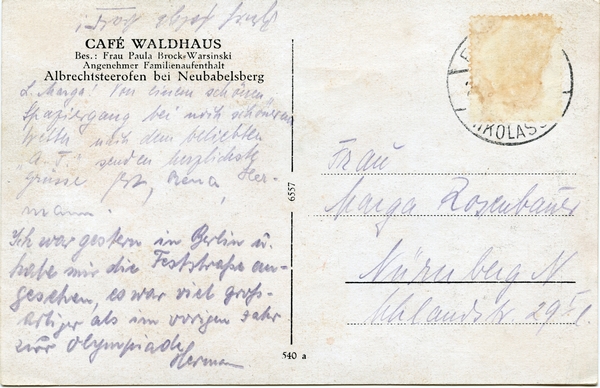 CAFÉ WALDHAUS
Bes.: Frau Paula Brock-Warsinski
Angenehmer Familienaufenthalt
Albrechtsteerofen bei Neubabelsberg
L. Marga! Von einem schönen
Spaziergang bei noch schönerem
Wetter nach dem beliebten
"A.T." senden herzlichste
Grüsse Rena, Her-
mann.
Ich war gestern in Berlin u.
habe mir die Feststraße an-
gesehen, es war viel groß-
artiger als im vorigen Jahr
zur Olympiade
Herman
6557
540 a
NIKOLASS
Frau
Marga Rosenbauer
Nürnberg N
Uhlandstr. 29